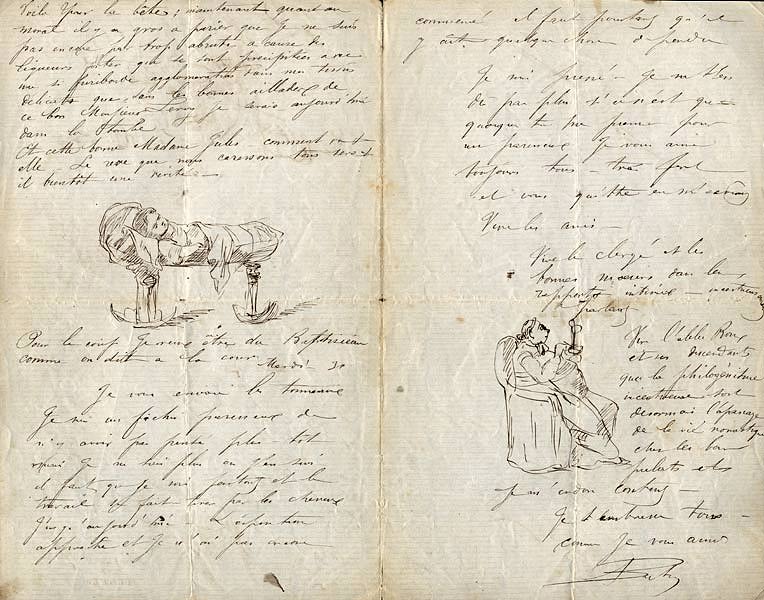 Voilà pour la bête ; maintenant quant au
moral il y a gros à parier que je ne suis
pas encore par trop abruti à cause des
liqueurs qui se sont précipitées avec
une si furibonde agglomération dans mes tissus
délicats que sans les bonnes de
ce bon Monsieur je serais aujourd'hui
dans la tombe
Et cette bonne Madame Jules comment va-t-
elle - Le rêve que nous caressons tous sera-t-
il bientôt une vérité -
Pour le coup je viens être du
comme on dit à la cour Mardi 30
Je vous envoie les
Je suis un fichu paresseux de
n'y avoir pas pensé plus tôt
mais je ne sais plus où j'en suis
il faut que je sois partout et le
travail se fait tirer par les cheveux
jusqu'aujourd'hui - L'exposition
approche et je n'ai pas encore
commencé il faut pourtant qu'il
y ait quelque chose de pendu
Je suis pressé - je ne t'en
dis pas plus si ce n'est que
quoique tu me prennes pour
un paresseux je vous aime
toujours tous - très fort
et vous
Vive les amis -
Vive le clergé et les
bonnes mœurs dans les
rapports intimes -
parlant
Vive l'abbé Roux
et ses descendants
que la
incestueuse soit
désormais l'apanage
de la
chez les bons
prélats et
Je m'endors content -
Je t'embrasse tous -
comme je vous aime